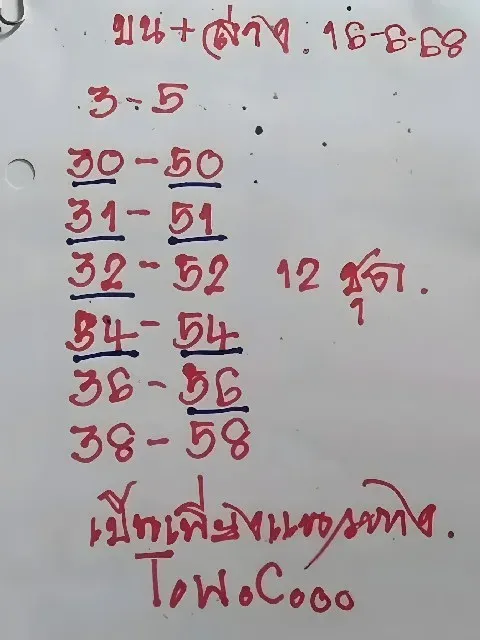 บน + ล่าง. 16-6-68
3-5
30-50
31-51
32-52 12 ชุด.
34-54
36-56
38-58
เป็นเพียงแนวทาง.